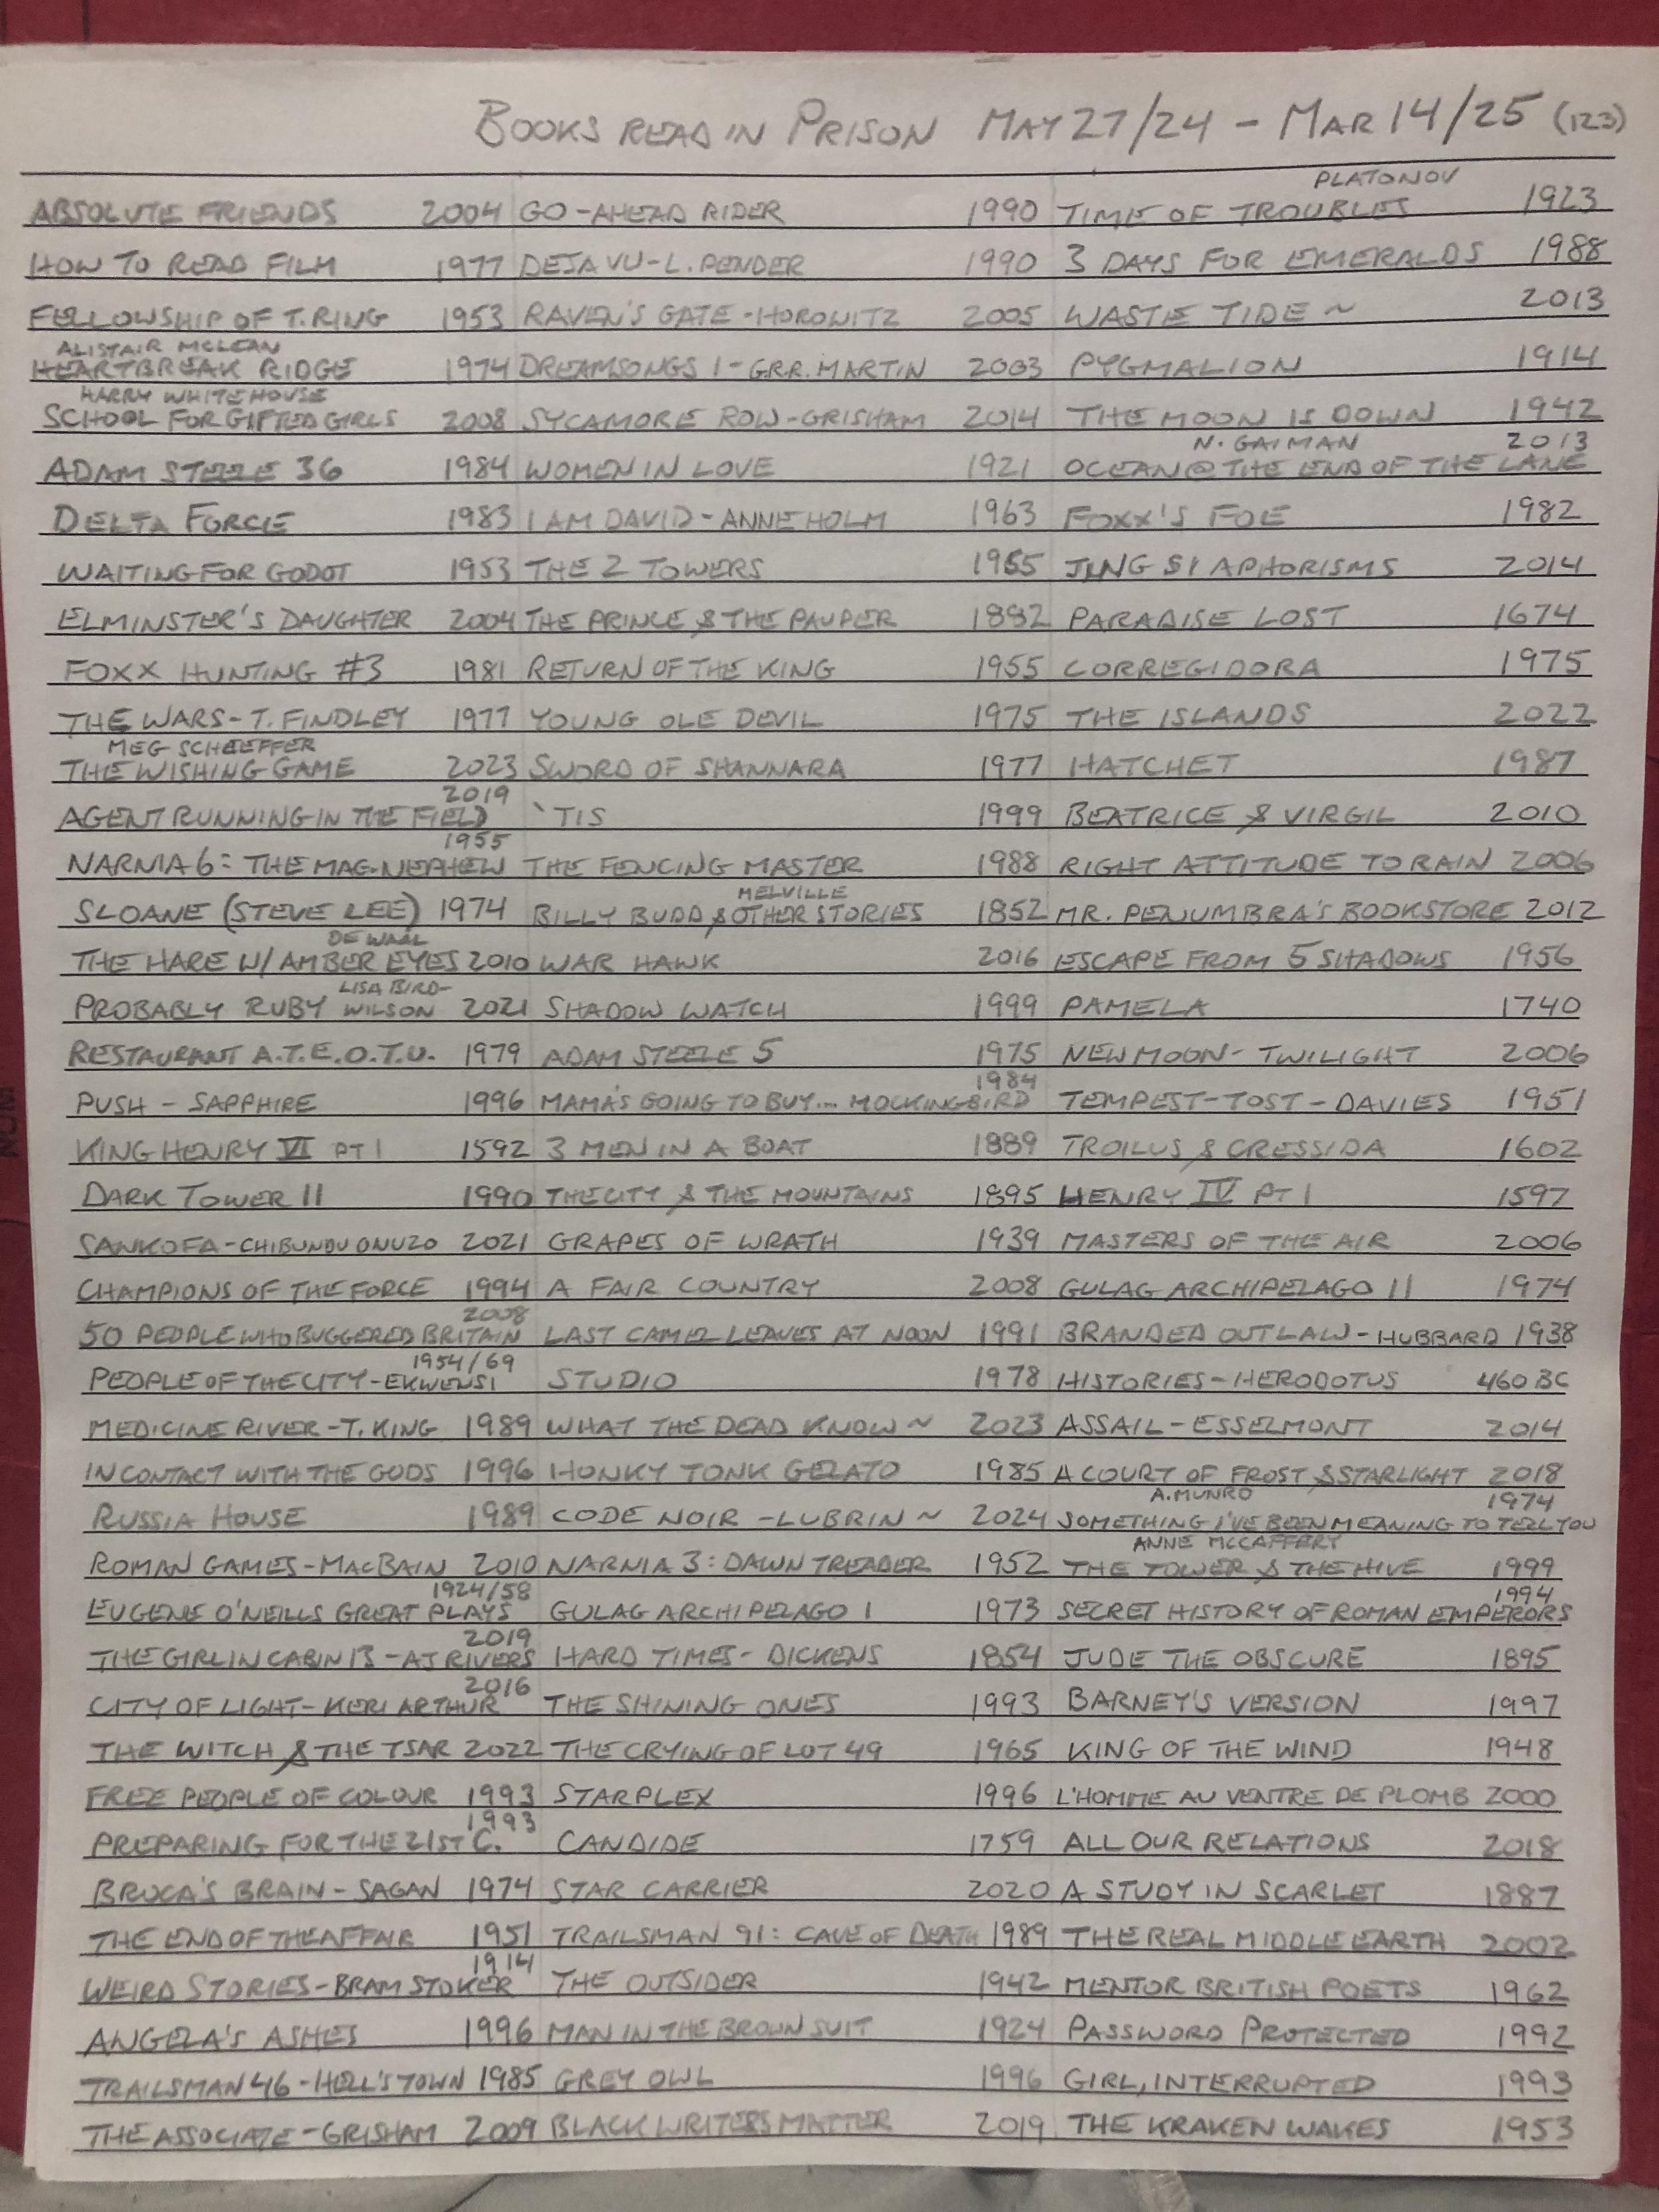 BOOKS READ IN PRISON MAY 27/24 - MAR 14/25 (123)
ABSOLUTE FRIENDS 2004
HOW TO READ FILM 1977
FELLOWSHIP OF T. RING 1953
ALISTAIR MCLEAN
HEARTBREAK RIDGE 1974
HARRY WHITEHOUSE
SCHOOL FOR GIFTED GIRLS 2008
ADAM STEELE 36 1984
DELTA FORCE 1983
WAITING FOR GODOT 1953
ELMINSTER'S DAUGHTER 2004
FOXX HUNTING #3 1981
THE WARS - T. FINDLEY 1977
MEG SCHAEFFER
THE WISHING GAME 2023
2019
AGENT RUNNING IN THE FIELD
1955
NARNIA 6: THE MAG. NEPHEW
SLOANE (STEVE LEE) 1974
DE WAAL
THE HARE W/ AMBER EYES 2010
LISA BIRD-
PROBABLY RUBY WILSON 2021
RESTAURANT A.T.E.O.T.U. 1979
PUSH - SAPPHIRE 1996
KING HENRY VI PT 1 1592
DARK TOWER II 1990
SANKOFA - CHIBUNDU ONUZO 2021
CHAMPIONS OF THE FORCE 1994
2008
50 PEOPLE WHO BUGGERED BRITAIN
1954/69
PEOPLE OF THE CITY - EKWENSI
MEDICINE RIVER - T. KING 1989
IN CONTACT WITH THE GODS 1996
RUSSIA HOUSE 1989
ROMAN GAMES - MACBAIN 2010
1924/58
EUGENE O'NEILLS GREAT PLAYS
2019
THE GIRL IN CABIN 13 - AJ RIVERS
2016
CITY OF LIGHT - KERI ARTHUR
THE WITCH & THE TSAR 2022
FREE PEOPLE OF COLOUR 1993
1993
PREPARING FOR THE 21ST C.
BROCA'S BRAIN - SAGAN 1974
THE END OF THE AFFAIR 1951
1914
WEIRD STORIES - BRAM STOKER
ANGELA'S ASHES 1996
TRAILSMAN 46 - HELL'S TOWN 1985
THE ASSOCIATE - GRISHAM 2009
GO-AHEAD RIDER 1990
DEJA VU - L. PENDER 1990
RAVEN'S GATE - HOROWITZ 2005
DREAMSONGS 1 - G.R.R. MARTIN 2003
SYCAMORE ROW - GRISHAM 2014
WOMEN IN LOVE 1921
I AM DAVID - ANNE HOLM 1963
THE 2 TOWERS 1955
THE PRINCE & THE PAUPER 1882
RETURN OF THE KING 1955
YOUNG OLE DEVIL 1975
SWORD OF SHANNARA 1977
'TIS 1999
THE FENCING MASTER 1988
MELVILLE
BILLY BUDD & OTHER STORIES 1852
WAR HAWK 2016
SHADOW WATCH 1999
ADAM STEELE 5 1975
1984
MAMA'S GOING TO BUY... MOCKINGBIRD
3 MEN IN A BOAT 1889
THE CITY & THE MOUNTAINS 1895
GRAPES OF WRATH 1939
A FAIR COUNTRY 2008
LAST CAMEL LEAVES AT NOON 1991
STUDIO 1978
WHAT THE DEAD KNOW ~ 2023
HONKY TONK GELATO 1985
CODE NOIR - LUBRIN ~ 2024
NARNIA 3: DAWN TREADER 1952
GULAG ARCHIPELAGO I 1973
HARD TIMES - DICKENS 1854
THE SHINING ONES 1993
THE CRYING OF LOT 49 1965
STARPLEX 1996
CANDIDE 1759
STAR CARRIER 2020
TRAILSMAN 91: CAVE OF DEATH 1989
THE OUTSIDER 1942
MAN IN THE BROWN SUIT 1924
GREY OWL 1996
BLACK WRITERS MATTER 2019
PLATONOV
TIME OF TROUBLES 1923
3 DAYS FOR EMERALDS 1988
WASTE TIDE ~ 2013
PYGMALION 1914
THE MOON IS DOWN 1942
N. GAIMAN 2013
OCEAN @ THE END OF THE LANE
FOXX'S FOE 1982
JUNG'S APHORISMS 2014
PARADISE LOST 1674
CORREGIDORA 1975
THE ISLANDS 2022
HATCHET 1987
BEATRICE & VIRGIL 2010
RIGHT ATTITUDE TO RAIN 2006
MR. PENUMBRA'S BOOKSTORE 2012
ESCAPE FROM 5 SHADOWS 1956
PAMELA 1740
NEW MOON - TWILIGHT 2006
TEMPEST-TOST - DAVIES 1951
TROILUS & CRESSIDA 1602
HENRY IV PT 1 1597
MASTERS OF THE AIR 2006
GULAG ARCHIPELAGO II 1974
BRANDED OUTLAW - HUBBARD 1938
HISTORIES - HERODOTUS 460 BC
ASSAIL - ESSELMONT 2014
A COURT OF FROST & STARLIGHT 2018
A. MUNRO 1974
SOMETHING I'VE BEEN MEANING TO TELL YOU
ANNE MCCAFFERY
THE TOWER & THE HIVE 1999
1994
SECRET HISTORY OF ROMAN EMPERORS
JUDE THE OBSCURE 1895
BARNEY'S VERSION 1997
KING OF THE WIND 1948
L'HOMME AU VENTRE DE PLOMB 2000
ALL OUR RELATIONS 2018
A STUDY IN SCARLET 1887
THE REAL MIDDLE EARTH 2002
MENTOR BRITISH POETS 1962
PASSWORD PROTECTED 1992
GIRL, INTERRUPTED 1993
THE KRAKEN WAKES 1953